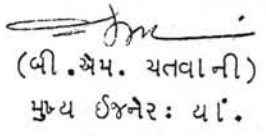 (બી.એમ. યતવાની)
મુખ્ય ઈજનેર: યાં.